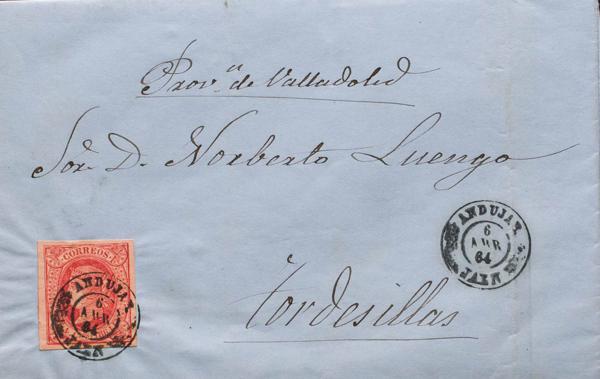 Prov.ª de Valladolid
Sor. D. Norberto Luengo
Tordesillas
ANDUJAR
6
ABR
64
JAEN
CORREOS
ANDUJAR
6
ABR
64
JAEN